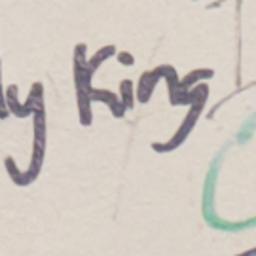 ly King